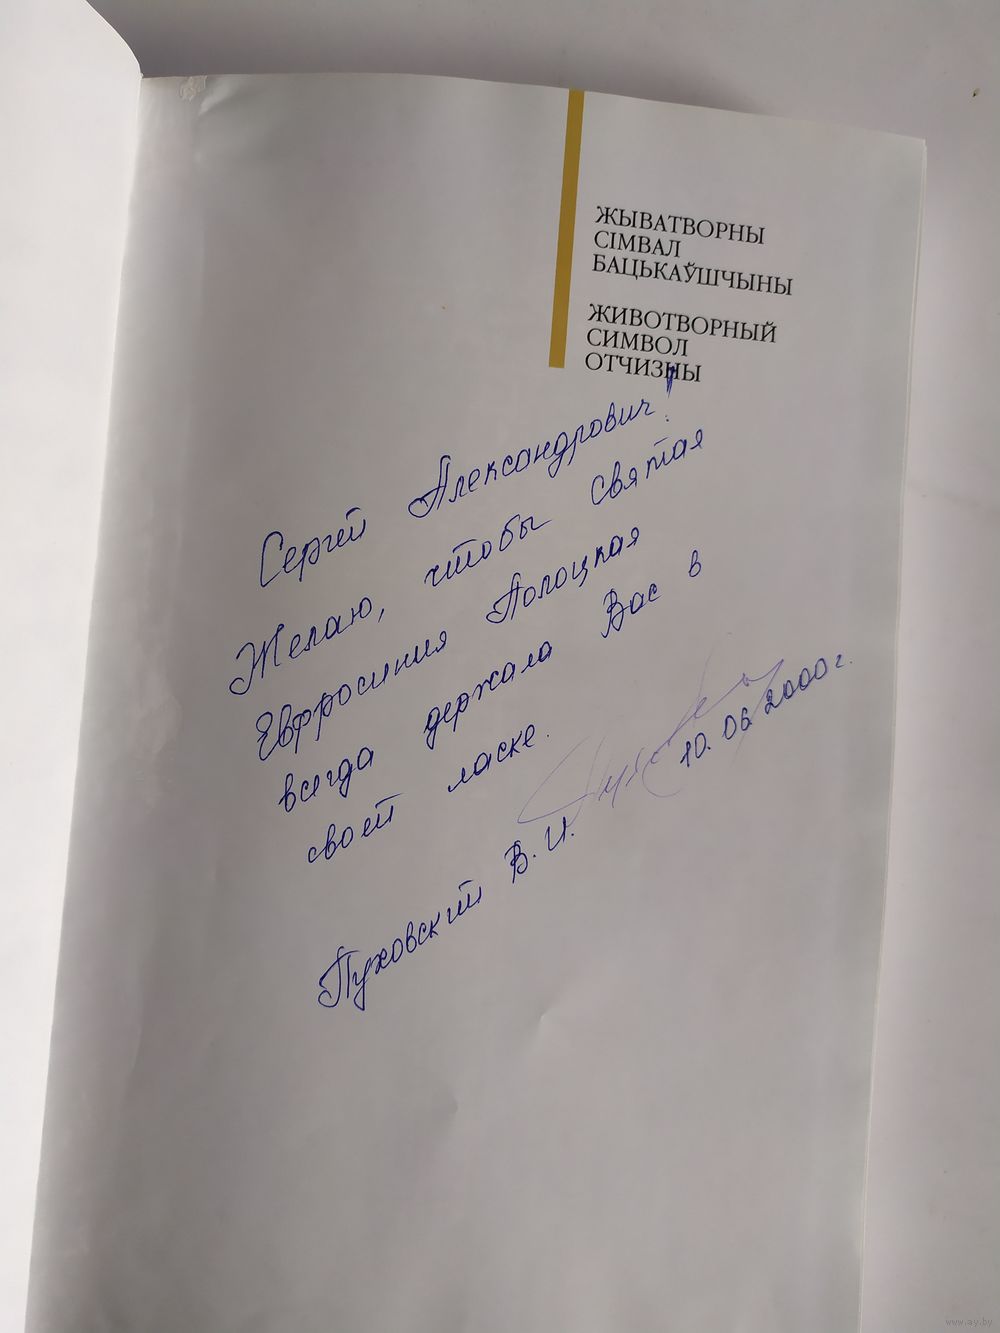 ЖЫВАТВОРНЫ
СІМВАЛ
БАЦЬКАЎШЧЫНЫ
ЖИВОТВОРНЫЙ
СИМВОЛ
ОТЧИЗНЫ
Сергей Александрович!
Желаю, чтобы Святая
Евфросиния Полоцкая
всегда держала Вас в
своей ласке.
10.06.2000 г.
Пуховский В. И.
www.ay.by